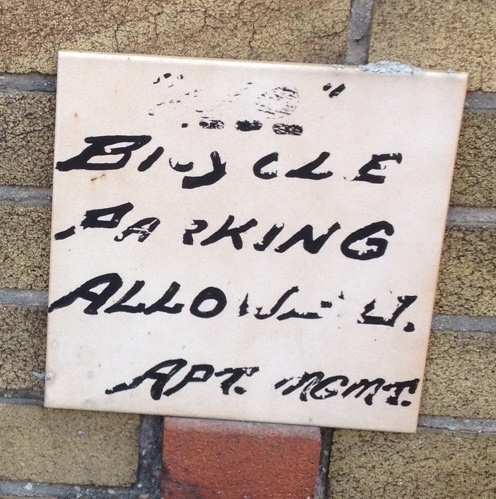 Bicycle
Parking
Allowed.
Apt. Mgmt.